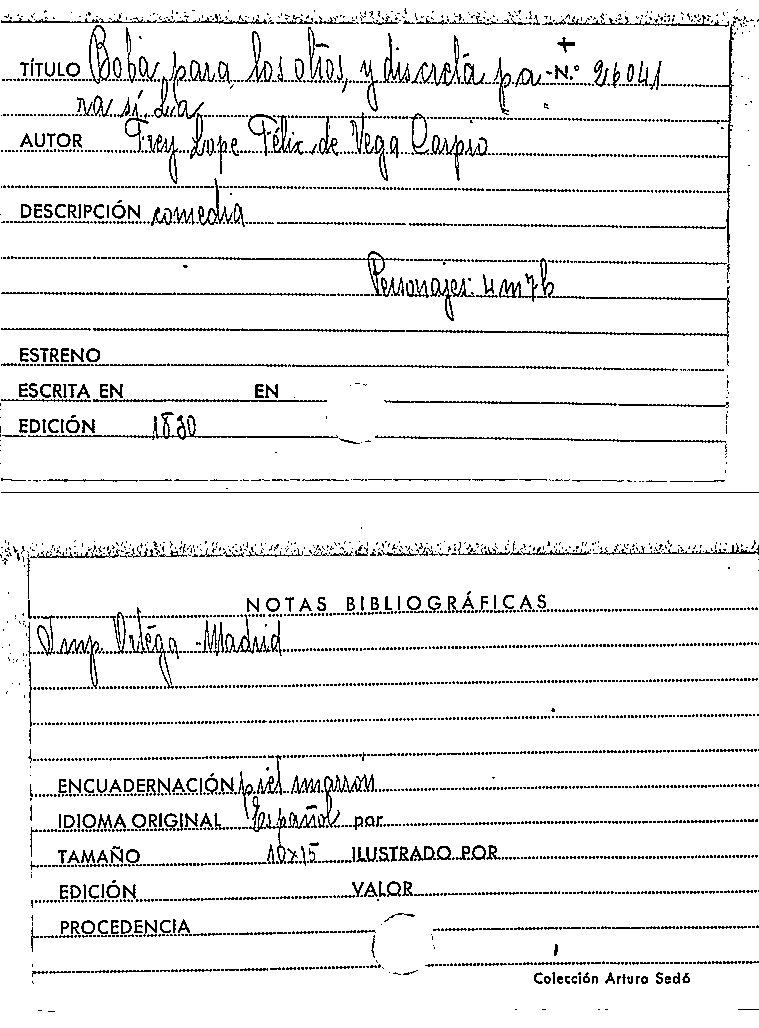 TÍTULO Boba para los otros, y discreta pa- N.º 26041
ra sí La
AUTOR Frey Lope Félix de Vega Carpio
DESCRIPCIÓN comedia
Personajes: 4m7h
ESTRENO
ESCRITA EN EN
EDICIÓN 1830
NOTAS BIBLIOGRÁFICAS
Imp. Ortega - Madrid
ENCUADERNACIÓN piel marron
IDIOMA ORIGINAL Español por
TAMAÑO 10x15 ILUSTRADO POR
EDICIÓN VALOR
PROCEDENCIA
Colección Arturo Sedó